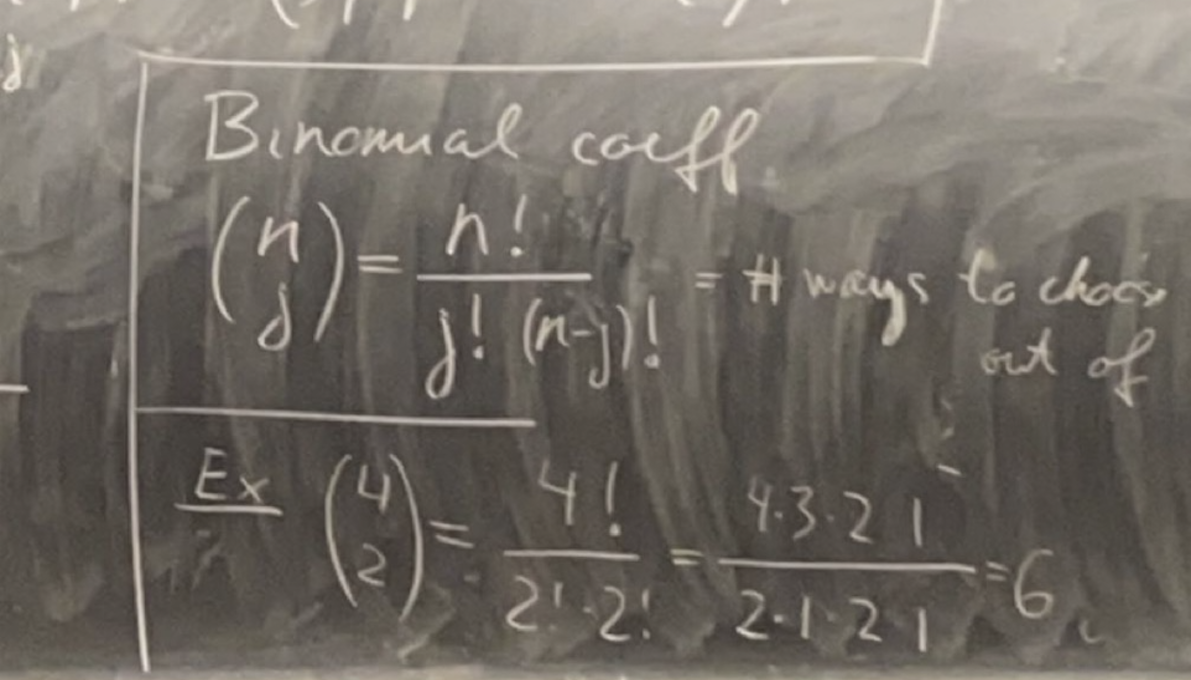 Binomial coeff
(n j) = n! / j! (n-j)! = # ways to choos
out of
Ex (4 2) = 4! / 2!·2! = 4·3·2 1 / 2·1·2 1 = 6